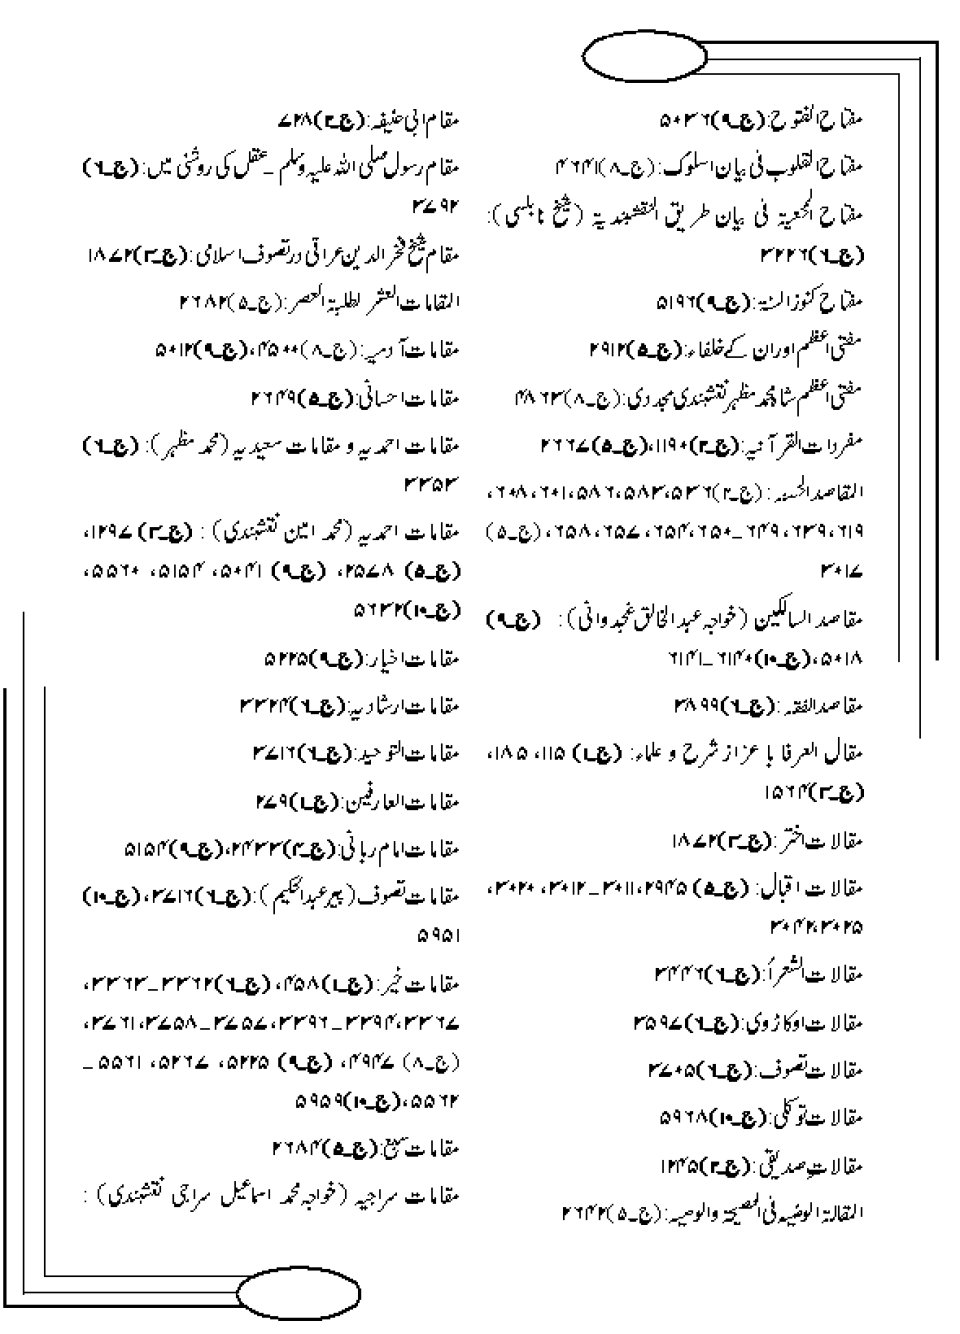 مفتاح الفتوح:(ج۔۹)۵۰۳۶
مفتاح القلوب فی بیان اسلوک:(ج۔۸)۴۶۴۱
مفتاح المجعیۃ فی بیان طریق النقشبندیۃ (شیخ نابلسی):
(ج۔۶)۳۲۲۶
مفتاح کنوز السنۃ:(ج۔۹)۵۱۹۶
مفتی اعظم اوران کے خلفاء:(ج۔۵)۲۹۱۲
مفتی اعظم شاہ محمد مظہر نقشبندی مجددی:(ج۔۸)۴۸۶۳
مفردات القرآنیہ:(ج۔۲)۱۱۹۰،(ج۔۵)۲۶۶۷
المقاصد الحسنہ:(ج۔۲)۵۳۶،۵۸۳،۵۸۶،۶۰۱،۶۰۸،
۶۱۹،۶۳۹،۶۴۹۔۶۵۰،۶۵۴،۶۵۷،۶۵۸،(ج۔۵)
۳۰۱۷
مقاصد السالکین (خواجہ عبدالخالق غجدوانی): (ج۔۹)
۵۰۱۸،(ج۔۱۰)۶۱۴۰۔۶۱۴۱
مقاصد الفقہ:(ج۔۶)۳۸۹۹
مقال العرفا با عزاز شرح و علماء: (ج۔۱) ۱۱۵، ۱۸۵،
(ج۔۳)۱۵۶۴
مقالات اختر:(ج۔۳)۱۸۷۲
مقالات اقبال: (ج۔۵) ۲۹۴۵،۳۰۱۱۔۳۰۱۲، ۳۰۲۰،
۳۰۲۵،۳۰۴۲
مقالات الشعرأ:(ج۔۶)۳۴۴۶
مقالات اوکاڑوی:(ج۔۶)۳۵۹۷
مقالات تصوف:(ج۔۶)۳۷۰۵
مقالات توکلی:(ج۔۱۰)۵۹۶۸
مقالاتِ صدیقی:(ج۔۲)۱۲۴۵
المقالۃ الوضیہ فی النصیحۃ والوصیہ:(ج۔۵)۲۶۴۲
مقام ابی حنیفہ:(ج۔۲)۷۲۸
مقام رسول صلی اللہ علیہ وسلم ۔ عقل کی روشنی میں:(ج۔۶)
۳۷۹۲
مقام شیخ فخر الدین عراقی در تصوف اسلامی:(ج۔۳)۱۸۷۲
المقامات العشر لطلبۃ العصر:(ج۔۵)۲۶۸۲
مقامات آدمیہ:(ج۔۸)۴۵۰۰،(ج۔۹)۵۰۱۲
مقامات احسانی:(ج۔۵)۲۶۴۹
مقامات احمدیہ و مقامات سعیدیہ (محمد مظہر): (ج۔۶)
۳۳۵۳
مقامات احمدیہ (محمد امین نقشبندی): (ج۔۳) ۱۲۹۷،
(ج۔۵) ۲۵۷۸، (ج۔۹) ۵۰۴۱، ۵۱۵۴، ۵۵۶۰،
(ج۔۱۰)۵۶۳۲
مقامات اخیار:(ج۔۹)۵۲۲۵
مقامات ارشادیہ:(ج۔۶)۳۳۲۴
مقامات التوحید:(ج۔۶)۳۷۱۶
مقامات العارفین:(ج۔۱)۲۷۹
مقامات امام ربانی:(ج۔۴)۲۴۳۳،(ج۔۹)۵۱۵۴
مقامات تصوف (پیر عبدالحکیم):(ج۔۶)۳۷۱۶،(ج۔۱۰)
۵۹۵۱
مقامات خیر:(ج۔۱)۴۵۸،(ج۔۶)۳۳۶۲۔۳۳۶۳،
۳۳۶۷،۳۳۹۴۔۳۳۹۶،۳۷۵۷۔۳۷۵۸،۳۷۶۱،
(ج۔۸) ۴۹۴۷، (ج۔۹) ۵۲۲۵، ۵۲۶۷، ۵۵۶۱۔
۵۵۶۲،(ج۔۱۰)۵۹۵۹
مقامات سبع:(ج۔۵)۲۶۸۴
مقامات سراجیہ (خواجہ محمد اسماعیل سراجی نقشبندی):